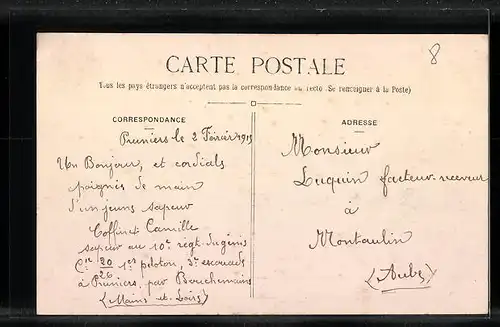 8
CARTE POSTALE
Tous les pays étrangers n'acceptent pas la correspondance au recto (Se renseigner à la Poste)
CORRESPONDANCE
Pruniers le 2 Février 1915
Un Bonjour, et cordials
poignés de main
d'un jeune sapeur
Coffinet Camille
sapeur au 10e régt. du génie
Cie 20/26 1er peloton, 3e escouade
à Pruniers, par Bouchemaine
(Maine et Loire)
ADRESSE
Monsieur
Luquin facteur-receveur
à
Montaulin
(Aube)